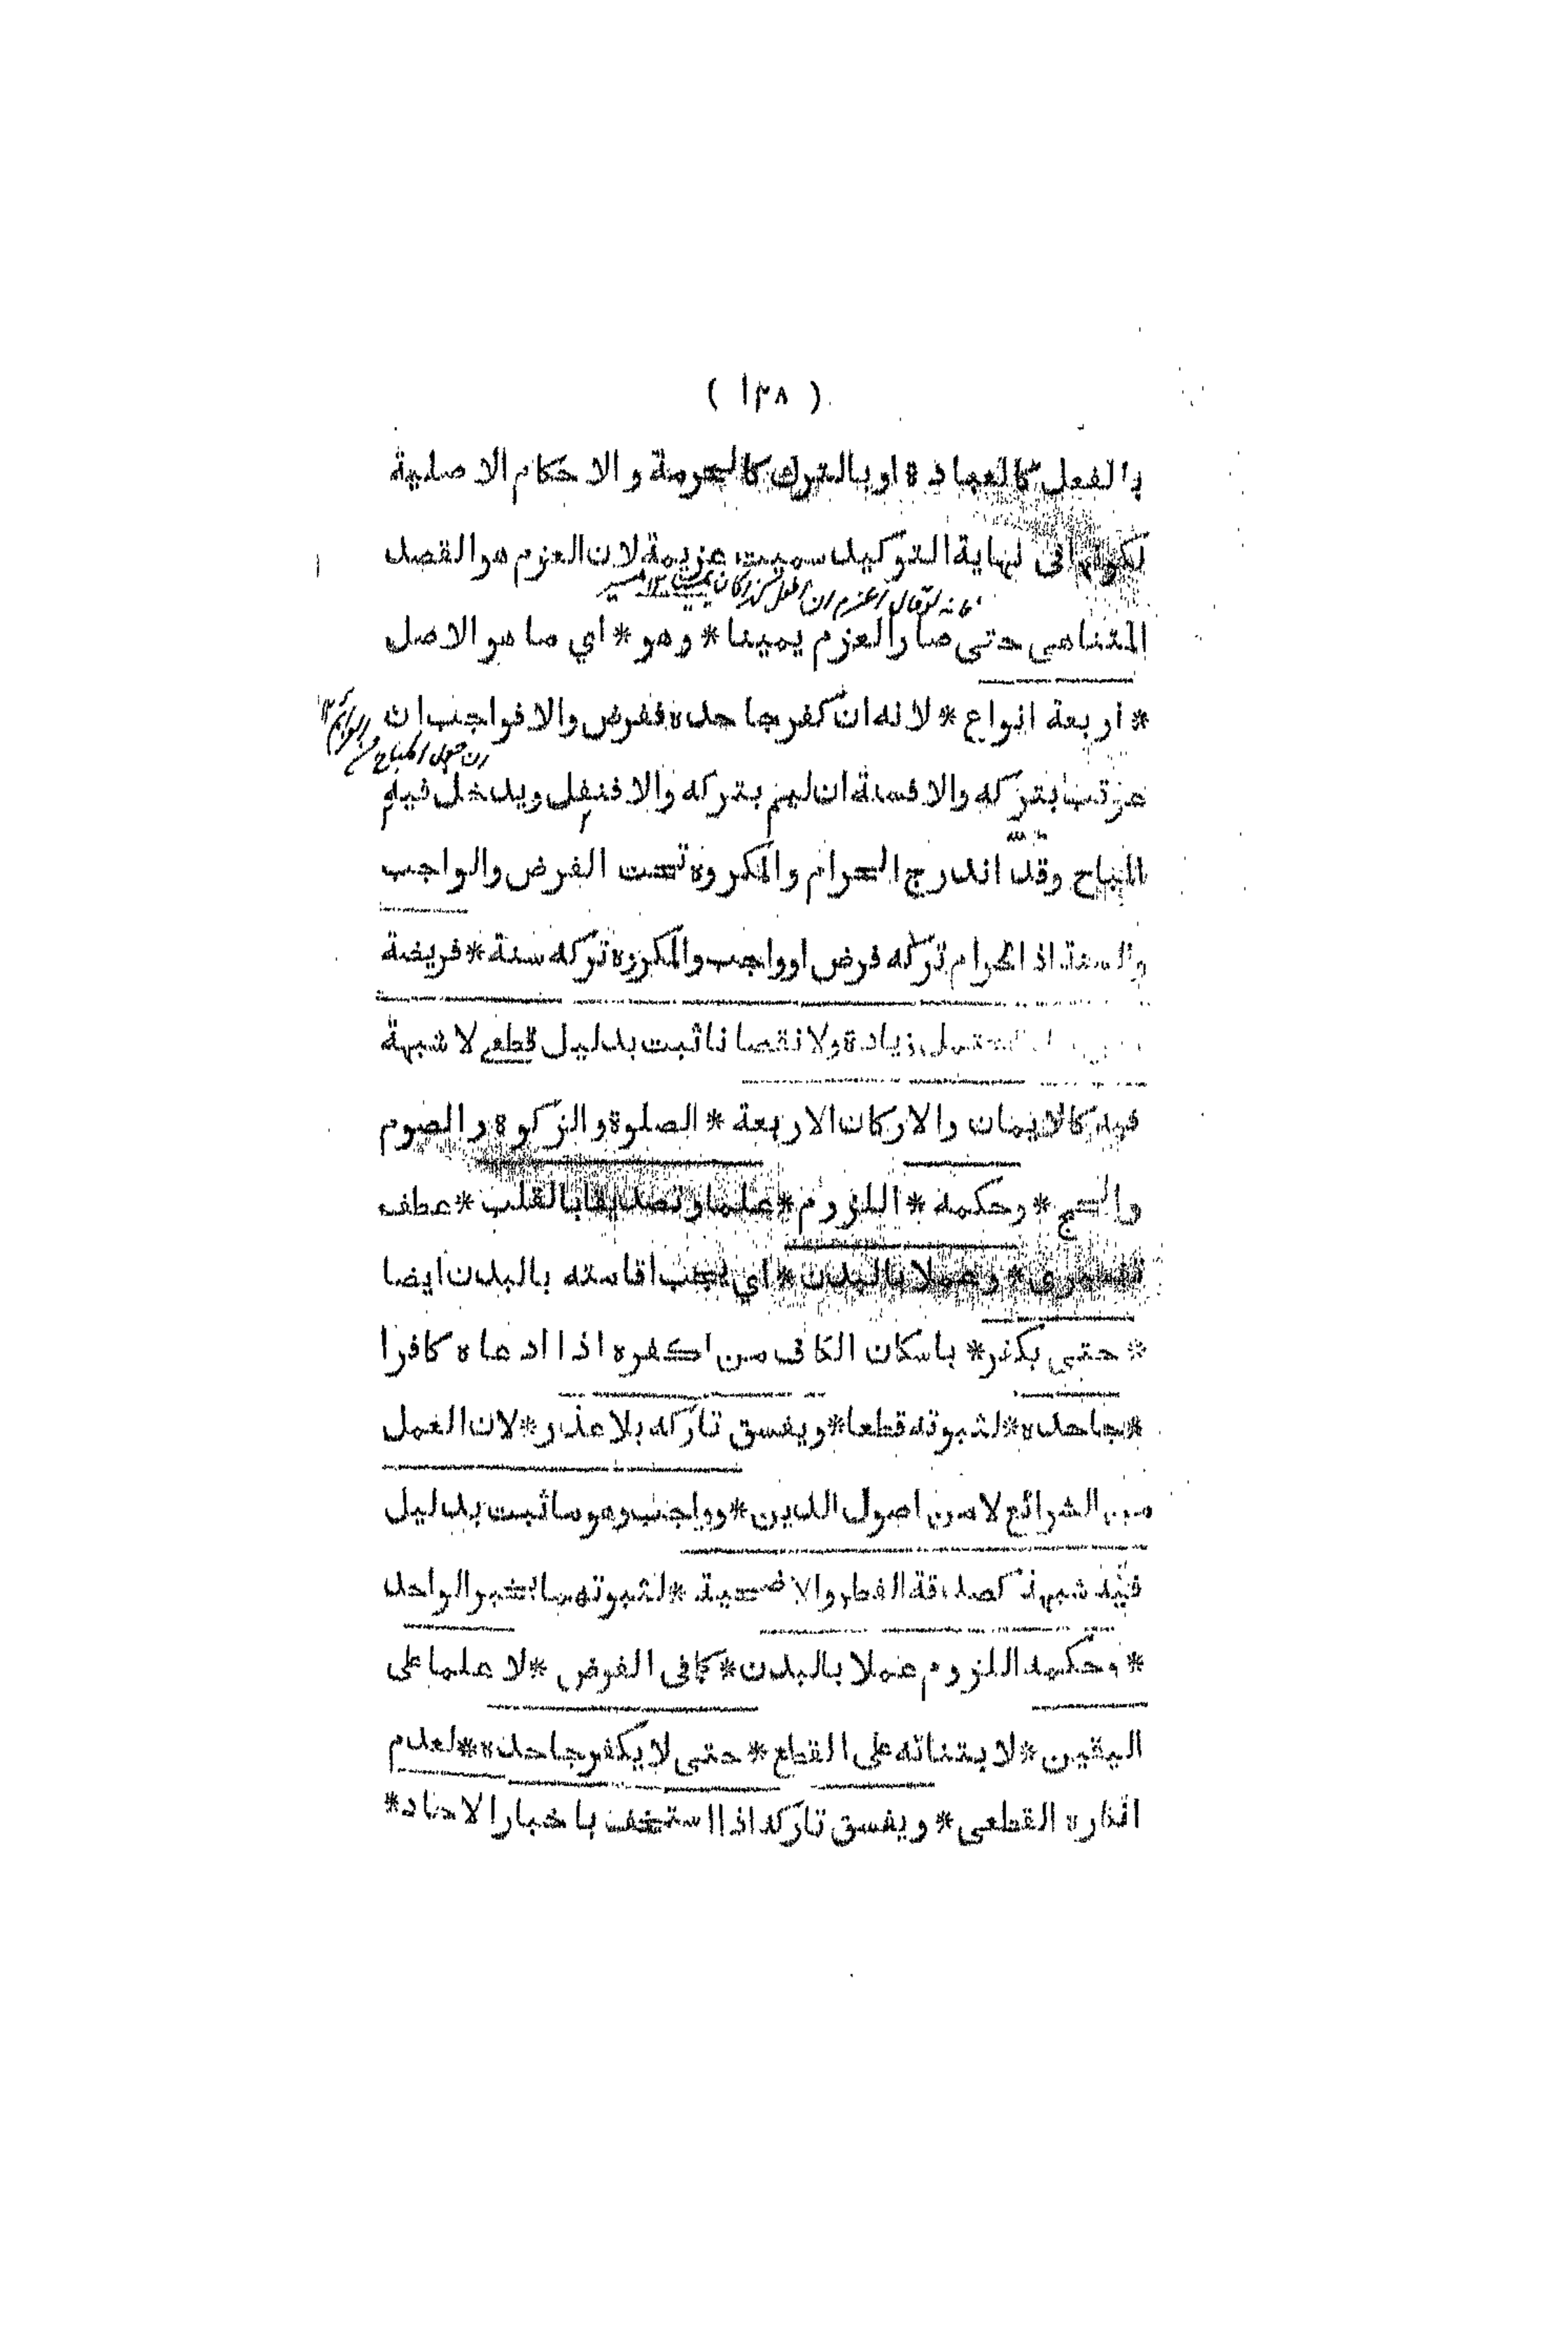 ( ١٣٨ )
بالفعل كالعبادة او بالترك كالحرمة والاحكام الاصلية
لكونها فى نهاية التوكيد سميت عزيمة لان العزم هو القصد
المتناهى حتى صار العزم يمينا * وهو * اي ما هو الاصل
* اربعة انواع * لانه ان كفر جاحده ففرض والا فواجب ان
عوتب بتركه والا فسنة ان ليم بتركه والا فنفل ويدخل فيه
المباح وقد اندرج الحرام والمكروه تحت الفرض والواجب
والسنة اذ الحرام تركه فرض او واجب والمكروه تركه سنة * فريضة
يحتمل زيادة ولا نقصانا ثبت بدليل قطعي لا شبهة
فيه كالايمان والاركان الاربعة * الصلوة والزكوة والصوم
والحج * وحكمه * اللزوم * علما وتصديقا بالقلب * عطف
تفسيرى * وعملا بالبدن * اي يجب اقامته بالبدن ايضا
* حتى يكفر * باسكان الكاف من اكفره اذا ادعاه كافرا
* جاحده * لثبوته قطعا * ويفسق تاركه بلا عذر * لان العمل
من الشرائع لا من اصول الدين * وواجب وهو ما ثبت بدليل
فيه شبهة كصدقة الفطر والاضحية * لثبوتهما بخبر الواحد
* وحكمه اللزوم عملا بالبدن * كما فى الفرض * لا علما على
اليقين * لابتنائه على القطع * حتى لا يكفر جاحده * لعدم
انكاره القطعى * ويفسق تاركه اذا استخف باخبار الاحاد *